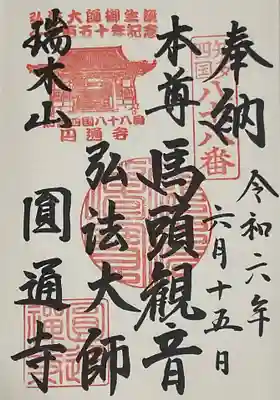 奉納
令和六年
六月十五日
本尊 馬頭観音
弘法大師
瑞木山 圓通寺
弘法大師御生誕
百五十年記念
四国八十八番
円通寺